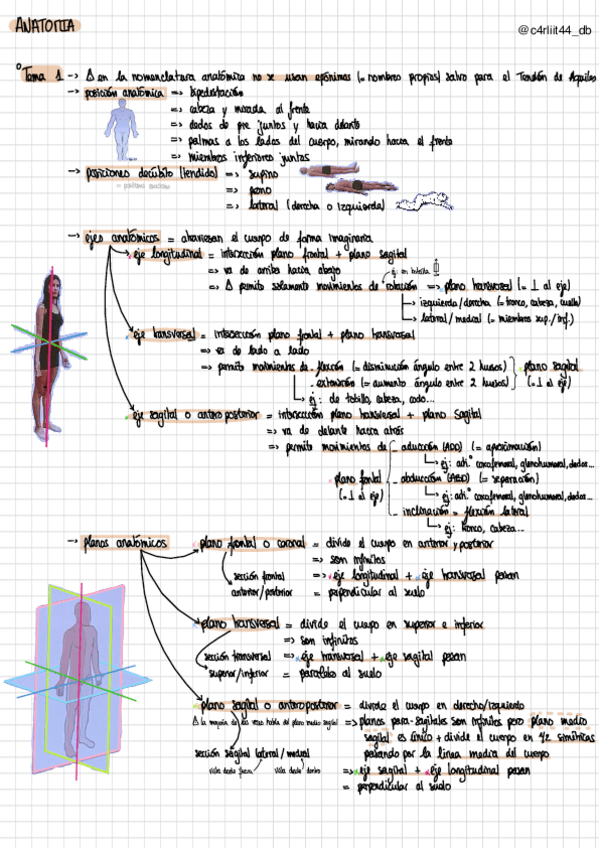 ANATOMIA
@c4rliit44_db
Tema 1 -> Δ en la nomenclatura anatómica no x usan epónimos (= nombres propios) salvo para el Tendón de Aquiles
-> posición anatómica => bipedestación
=> cabeza y mirada al frente
=> dedos de pie juntos y hacia delante
=> palmas a los lados del cuerpo, mirando hacia el frente
=> miembros inferiores juntos
-> posiciones decúbito (tendido) => supino
=> prono
=> lateral (derecha o izquierda)
-> ejes anatómicos = atraviesan el cuerpo de forma imaginaria
eje longitudinal = intersección plano frontal + plano sagital
=> va de arriba hacia abajo
=> Δ permite solamente movimientos de rotación => plano transversal (= ⊥ al eje)
izquierda/derecha (= tronco, cabeza, cuello)
lateral/medial (= miembros sup./inf.)
eje transversal = intersección plano frontal + plano transversal
=> va de lado a lado
=> permite movimientos de flexión (= disminución ángulo entre 2 huesos) plano sagital
extensión (= aumento ángulo entre 2 huesos) (= ⊥ al eje)
ej: de tobillo, cabeza, codo...
eje sagital o antero posterior = intersección plano transversal + plano sagital
=> va de delante hacia atrás
=> permite movimientos de - aducción (ADD) (= aproximación)
ej: art. coxofemoral, glenohumeral, dedos...
plano frontal - abducción (ABD) (= separación)
(= ⊥ al eje) ej: art. coxofemoral, glenohumeral, dedos...
- inclinación = flexión lateral
ej: tronco, cabeza...
-> planos anatómicos plano frontal o coronal = divide el cuerpo en anterior y posterior
=> son infinitos
sección frontal => eje longitudinal + eje transversal pasan
anterior/posterior = perpendicular al suelo
plano transversal = divide el cuerpo en superior e inferior
=> son infinitos
sección transversal => eje transversal + eje sagital pasan
superior/inferior = paralelo al suelo
plano sagital o anteroposterior = divide el cuerpo en derecho/izquierdo
Δ la mayoría de las veces habla del plano medio sagital => planos para-sagitales son infinitos pero plano medio
sagital es único + divide el cuerpo en 1/2 simétricas
sección sagital lateral/medial pasando por la línea media del cuerpo
vista desde fuera vista desde dentro => eje sagital + eje longitudinal pasan
= perpendicular al suelo